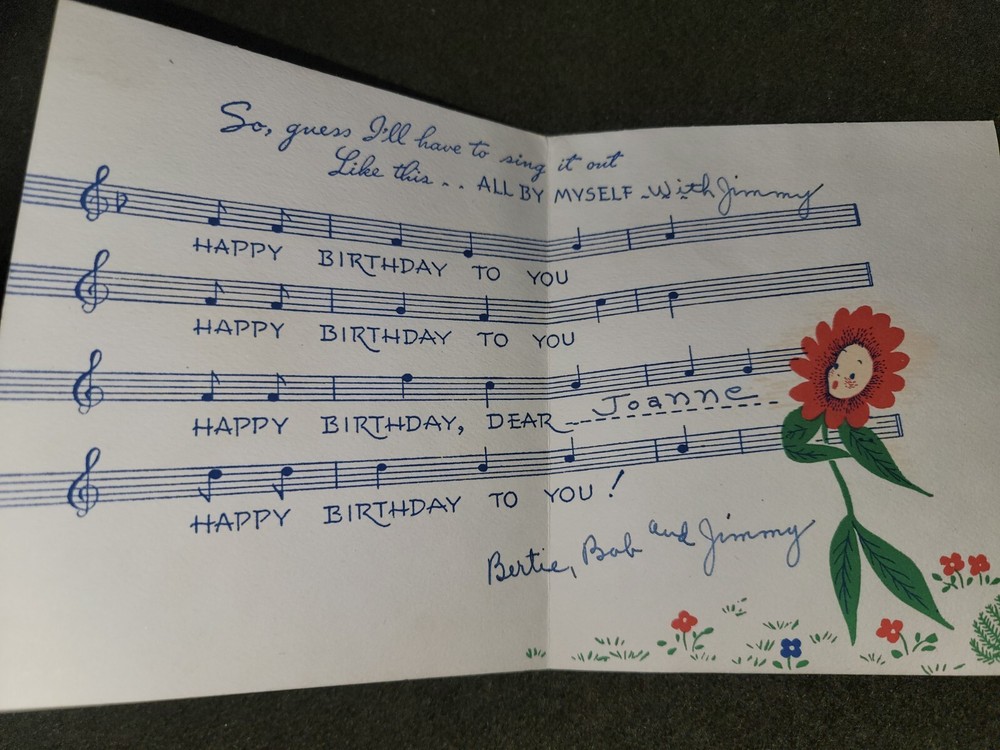 So, guess I'll have to sing it out
Like this . . ALL BY MYSELF with Jimmy
HAPPY BIRTHDAY TO YOU
HAPPY BIRTHDAY TO YOU
HAPPY BIRTHDAY, DEAR Joanne
HAPPY BIRTHDAY TO YOU!
Bertie, Bob and Jimmy